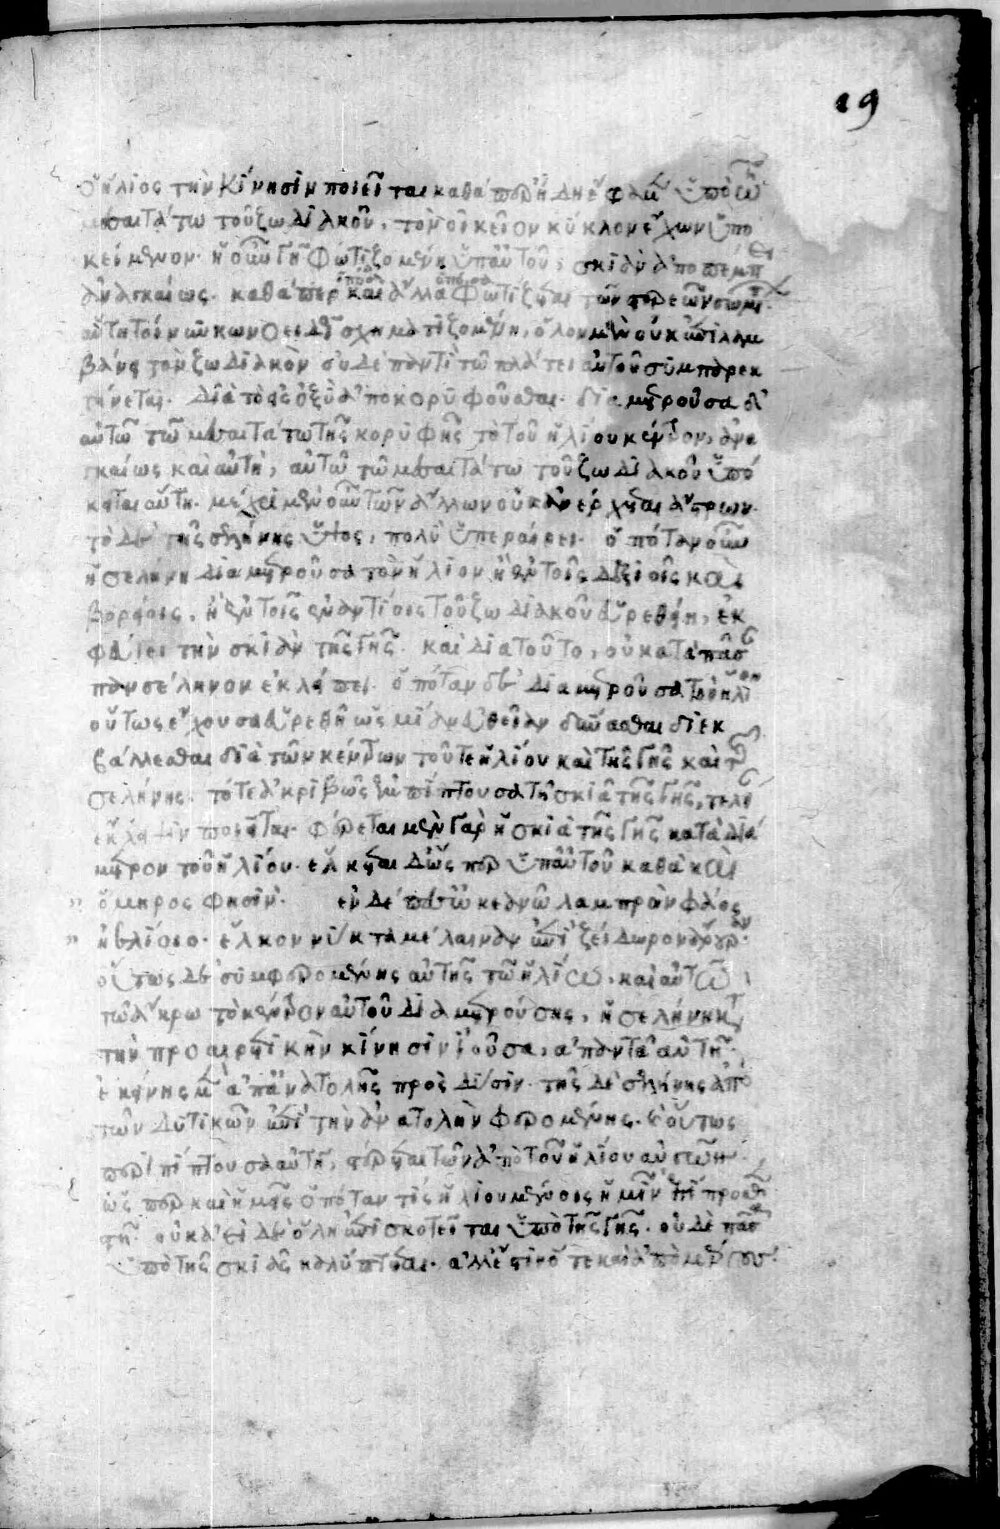 19
ὁ ἥλιος τὴν κίνησιν ποιεῖται καθάπερ ἤδη ἔφαμεν ὑπὸ τῶ
μεσαιτάτω τοῦ ζωδιακοῦ, τὸν οἰκεῖον κύκλον ἔχων ὑπο
κείμενον. ἡ οὖν γῆ φωτιζομένη ὑπ' αὐτοῦ, σκιὰν ἀποπέμπει
ἀναγκαίως. καθάπερ καὶ ἄλλα φωτίζεται τῶν στερεῶν σωμάτων.
αὕτη τοίνυν κωνοειδῶς σχηματιζομένη, ὅλον μὲν οὐκ ἐπιλαμ
βάνει τὸν ζωδιακὸν οὐδὲ παντὶ τῶ πλάτει αὐτοῦ συμπαρεκ
τείνεται. διὰ τὸ εἰς ὀξὺ ἀποκορυφοῦσθαι. διαμετροῦσα δ'
αὐτῶ τῶ μεσαιτάτω τῆς κορυφῆς τὸ τοῦ ἡλίου κέντρον, ἀνα
γκαίως καὶ αὐτὴ, αὐτῶ τῶ μεσαιτάτω τοῦ ζωδιακοῦ ὑπό
κειται αὕτη. μέχρι μὲν οὖν τῶν ἄλλων οὐκ ἀνέρχεται ἄστρων.
τὸ δὲ τῆς σελήνης ὕψος, πολὺ ὑπεραίρει. ὁπόταν οὖν
ἡ σελήνη διαμετροῦσα τὸν ἥλιον ἢ ἐν τοῖς δεξιοῖς καὶ
βορείοις, ἢ ἐν τοῖς ἐναντίοις τοῦ ζωδιακοῦ εὑρεθείη, ἐκ
φεύγει τὴν σκιὰν τῆς γῆς. καὶ διὰ τοῦτο, οὐ κατὰ πᾶσαν
πανσέληνον ἐκλείπει. ὁπόταν δὲ διαμετροῦσα τὸν ἥλιον
οὕτως ἔχουσα εὑρεθῆ ὡς μίαν εὐθεῖαν δύνασθαι διεκ
βάλλεσθαι διὰ τῶν κέντρων τοῦ τε ἡλίου καὶ τῆς γῆς καὶ τῆς
σελήνης. τότε ἀκριβῶς ἐμπίπτουσα τῆ σκιᾶ τῆς γῆς, τελείαν
ἔκλειψιν ποιεῖται. φέρεται μὲν γὰρ ἡ σκιὰ τῆς γῆς κατὰ διά
μετρον τοῦ ἡλίου. ἕλκεται δ' ὥσπερ ὑπ' αὐτοῦ καθὰ καὶ
ὅμηρος φησίν. ἐν δ' ἔπεσ' ὠκεανῶ λαμπρὸν φάος
ἠελίοιο. ἕλκον νύκτα μέλαιναν ἐπὶ ζείδωρον ἄρουραν.
οὕτως δὲ συμφερομένης αὐτῆς τῶ ἡλίω, καὶ αὐτῶ
τῶ ἄκρω τὸ κέντρον αὐτοῦ διαμετρούσης, ἡ σελήνη κατὰ
τὴν προαιρετικὴν κίνησιν ἰοῦσα, ἀπαντᾶ αὐτῆ.
ἐκείνης μὲν ἀπ' ἀνατολῆς πρὸς δύσιν. τῆς δὲ σελήνης ἀπὸ
τῶν δυτικῶν ἐπὶ τὴν ἀνατολὴν φερομένης. οὕτως
περιπίπτουσα αὐτῆ, στερεῖται τῶν ἀπὸ τοῦ ἡλίου αὐγῶν.
ὥσπερ καὶ ἡμεῖς ὁπόταν τις ἡλιουμένοις ἡμῖν ἐπιπροσθῆ
οὐκ ἀεὶ δὲ ὅλη ἐπισκοτεῖται ὑπὸ τῆς γῆς. οὐδὲ πᾶσα
ὑπὸ τῆς σκιᾶς καλύπτεται. ἀλλ' ἔστιν ὅτε καὶ ἀπὸ μέρους